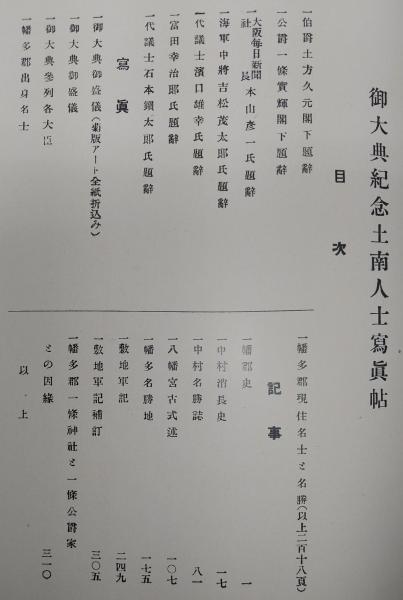 御大典紀念土南人士寫眞帖
目次
一伯爵土方久元閣下題辭
一公爵一條實輝閣下題辭
一大阪每日新聞社長本山彥一氏題辭
一海軍中將吉松茂太郎氏題辭
一代議士濱口雄幸氏題辭
一富田幸次郎氏題辭
一代議士石本鏆太郎氏題辭
寫眞
一御大典御盛儀(菊版アート全紙折込み)
一御大典御盛儀
一御大典參列各大臣
一幡多郡出身名士
一幡多郡現住名士と名勝(以上二百十八頁)
記事
一幡郡史 一
一中村消長史 一七
一中村名勝誌 八一
一八幡宮古式述 一〇七
一幡多名勝地 一七五
一敷地軍記 二四九
一敷地軍記補訂 三〇五
一幡多郡一條神社と一條公爵家との因緣 三一〇
以上